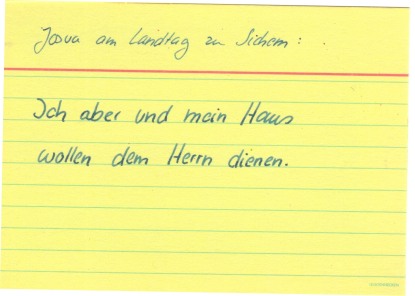 Josua am Landtag zu Sichem:
Ich aber und mein Haus
wollen dem Herrn dienen.